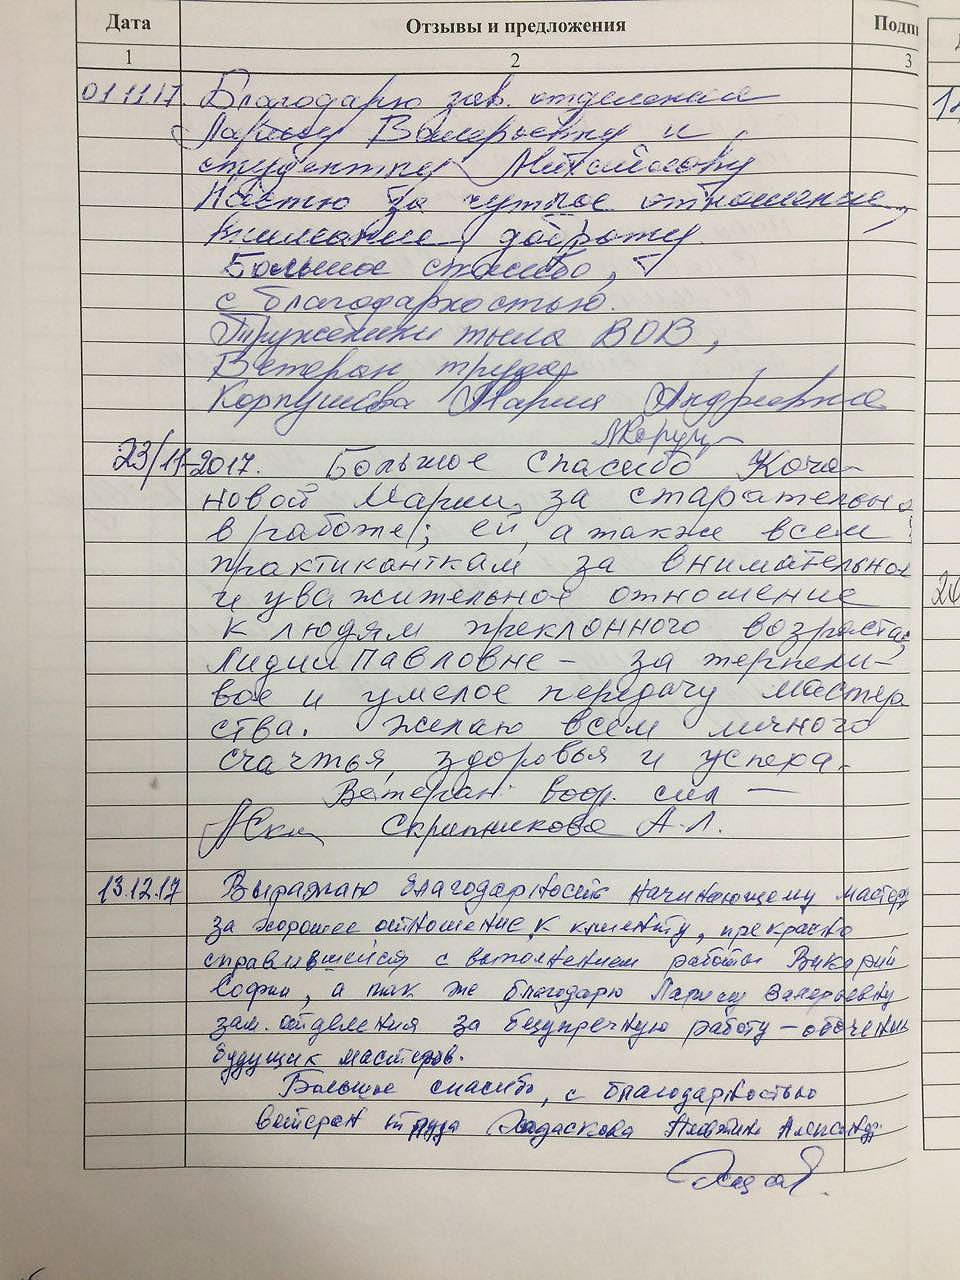 Дата Отзывы и предложения Подпи
1 2 3
01.11.17. Благодарю зав. отделения
Ларису Валерьевну и
студентку
Настю за чуткое отношение,
внимание, доброту.
Большое спасибо,
с благодарностью.
Труженик тыла ВОВ,
Ветеран труда
Мария Андреевна
23/11-2017. Большое спасибо Коча-
новой Марии, за старательно
в работе; ей, а также всем
практиканткам за внимательное
и уважительное отношение
к людям преклонного возраста;
Лидии Павловне - за терпели-
вое и умелое передачу мастер
ства. Желаю всем личного
счастья, здоровья и успеха.
Ветеран воор. сил —
Скрипникова А.Л.
13.12.17 Выражаю благодарность начинающему мастеру
за хорошее отношение к клиенту, прекрасно
справившейся с выполнением работы
Софии, а так же благодарю Ларису Валерьевну
зам. отделения за безупречную работу – обучение
будущих мастеров.
Большое спасибо, с благодарностью
ветеран труда